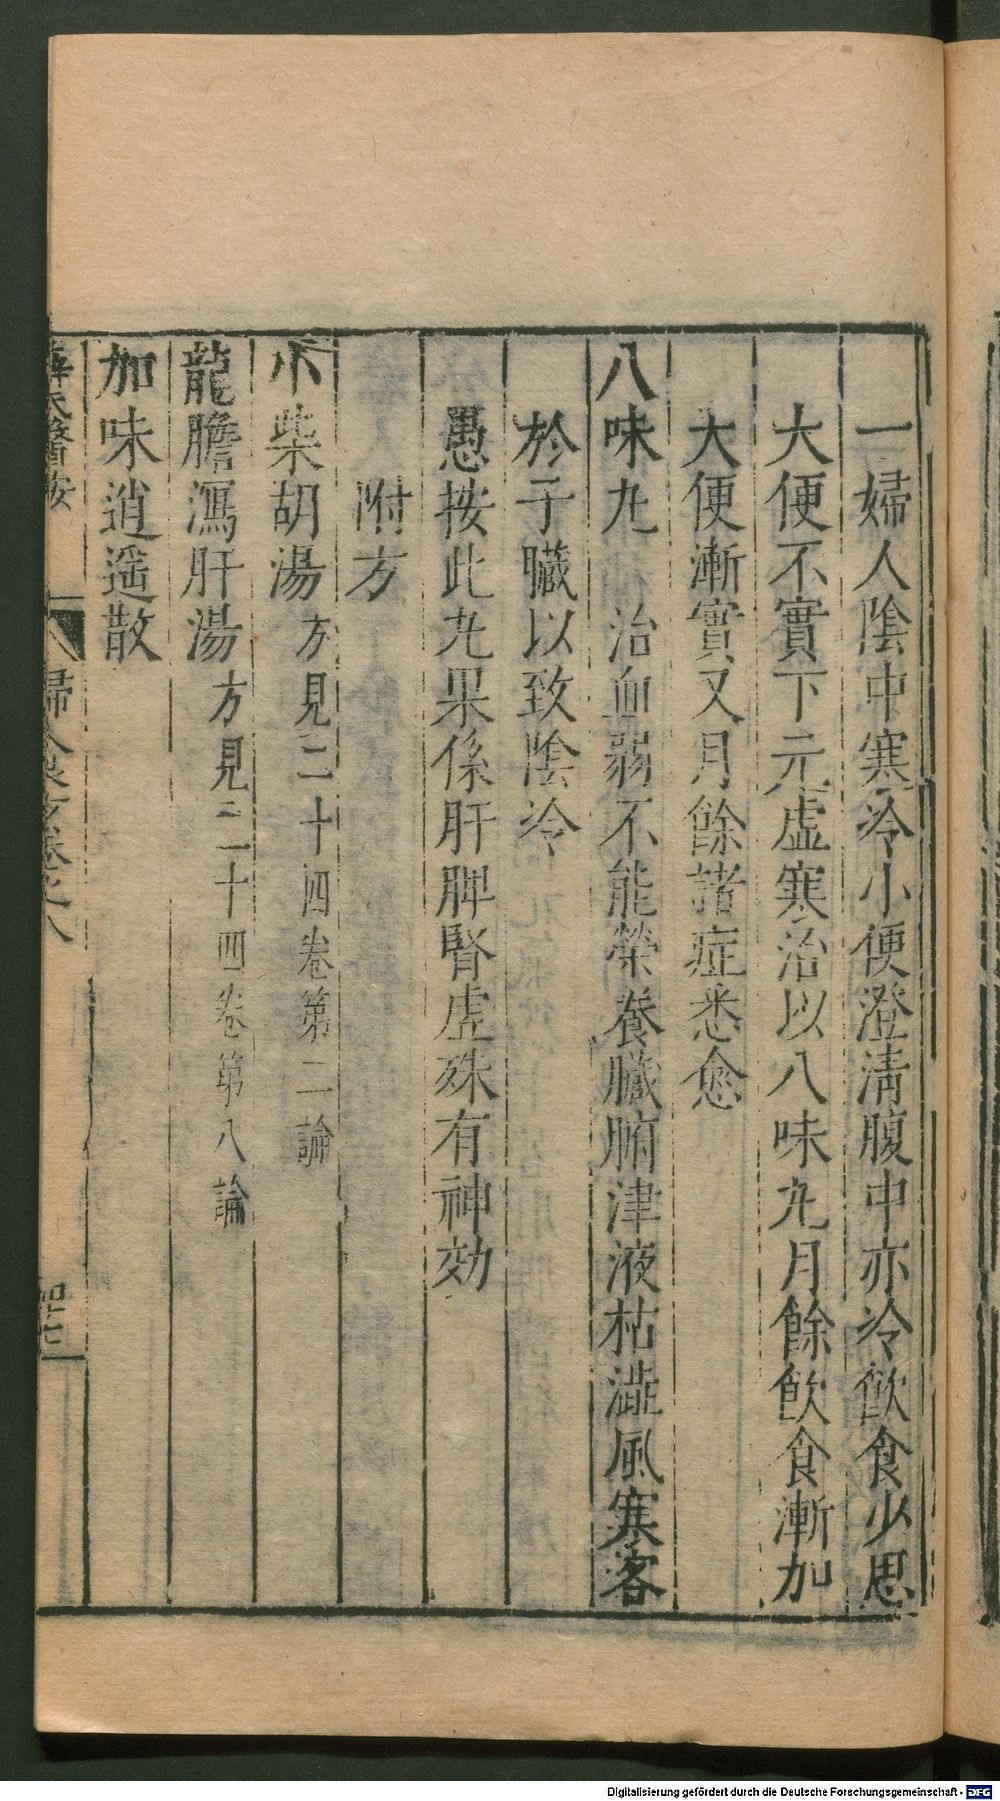 一婦人陰中寒冷小便澄清腹中亦冷飲食少思
大便不實下元虛寒治以八味丸月餘飲食漸加
大便漸實又月餘諸症悉愈
八味丸 治血弱不能榮養臟腑津液枯澁風寒客
於子臟以致陰冷
愚按此丸果係肝脾腎虛殊有神効
附方
小柴胡湯 方見二十四卷第二論
龍膽瀉肝湯 方見二十四卷第八論
加味逍遥散
薛氏醫按 婦人良方卷之八
Digitalisierung gefördert durch die Deutsche Forschungsgemeinschaft - DFG